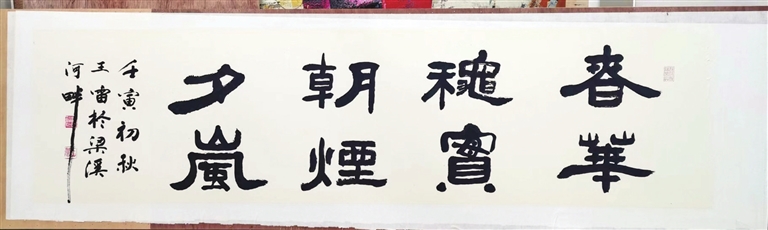 春華
穐實
朝煙
夕嵐
壬寅初秋
王雷於梁溪
河畔